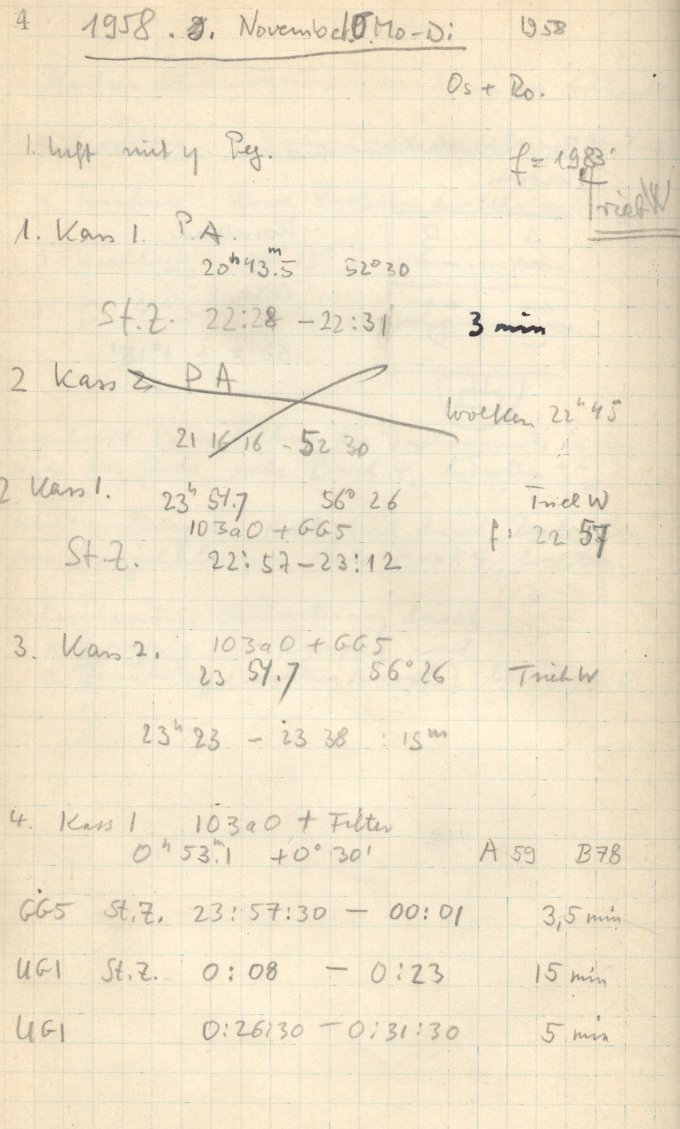 4 1958. 9. November Mo-Di 1958
Os + Ro.
1. luft mit η Peg.
f = 1983
1. Kass 1. P.A.
20ʰ43.ᵐ5 52°30
St.Z. 22:28 - 22:31 3 min
2 Kass 2 P A
Wolken 22ʰ45
21 16 16 - 52 30
2 Kass 1. 23ʰ 51.7 56° 26 Trich W
103aO + GG5 f: 22 57
St.Z. 22:57-23:12
3. Kass 2. 103aO + GG5
23 51.7 56°26 Trich W
23ʰ 23 - 23 38 : 15ᵐ
4. Kass 1 103aO + Filter
0ʰ 53.ᵐ1 +0° 30' A 59 B78
GG5 St.Z. 23:57:30 - 00:01 3,5 min
UG1 St.Z. 0:08 - 0:23 15 min
UG1 0:26:30 - 0:31:30 5 min